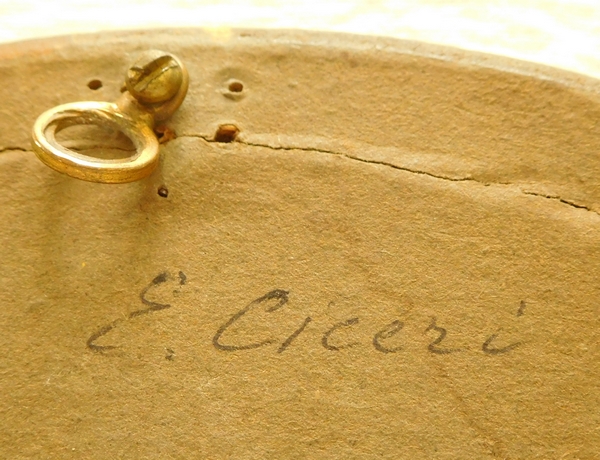 E. Ciceri